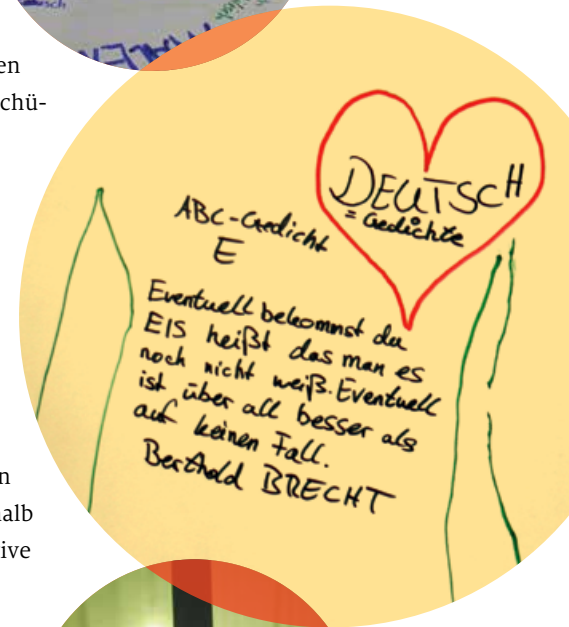 sch
en
chü-
DEUTSCH
= Gedichte
ABC-Gedicht
E
Eventuell bekommst du
EIS heißt das man es
noch nicht weiß. Eventuell
ist über all besser als
auf keinen Fall.
Berthold BRECHT
n
halb
ive